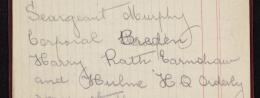 Seargeant Murphy
Corporal Breden
Harry Rath Earnshaw
and Hulme H.Q Orderly